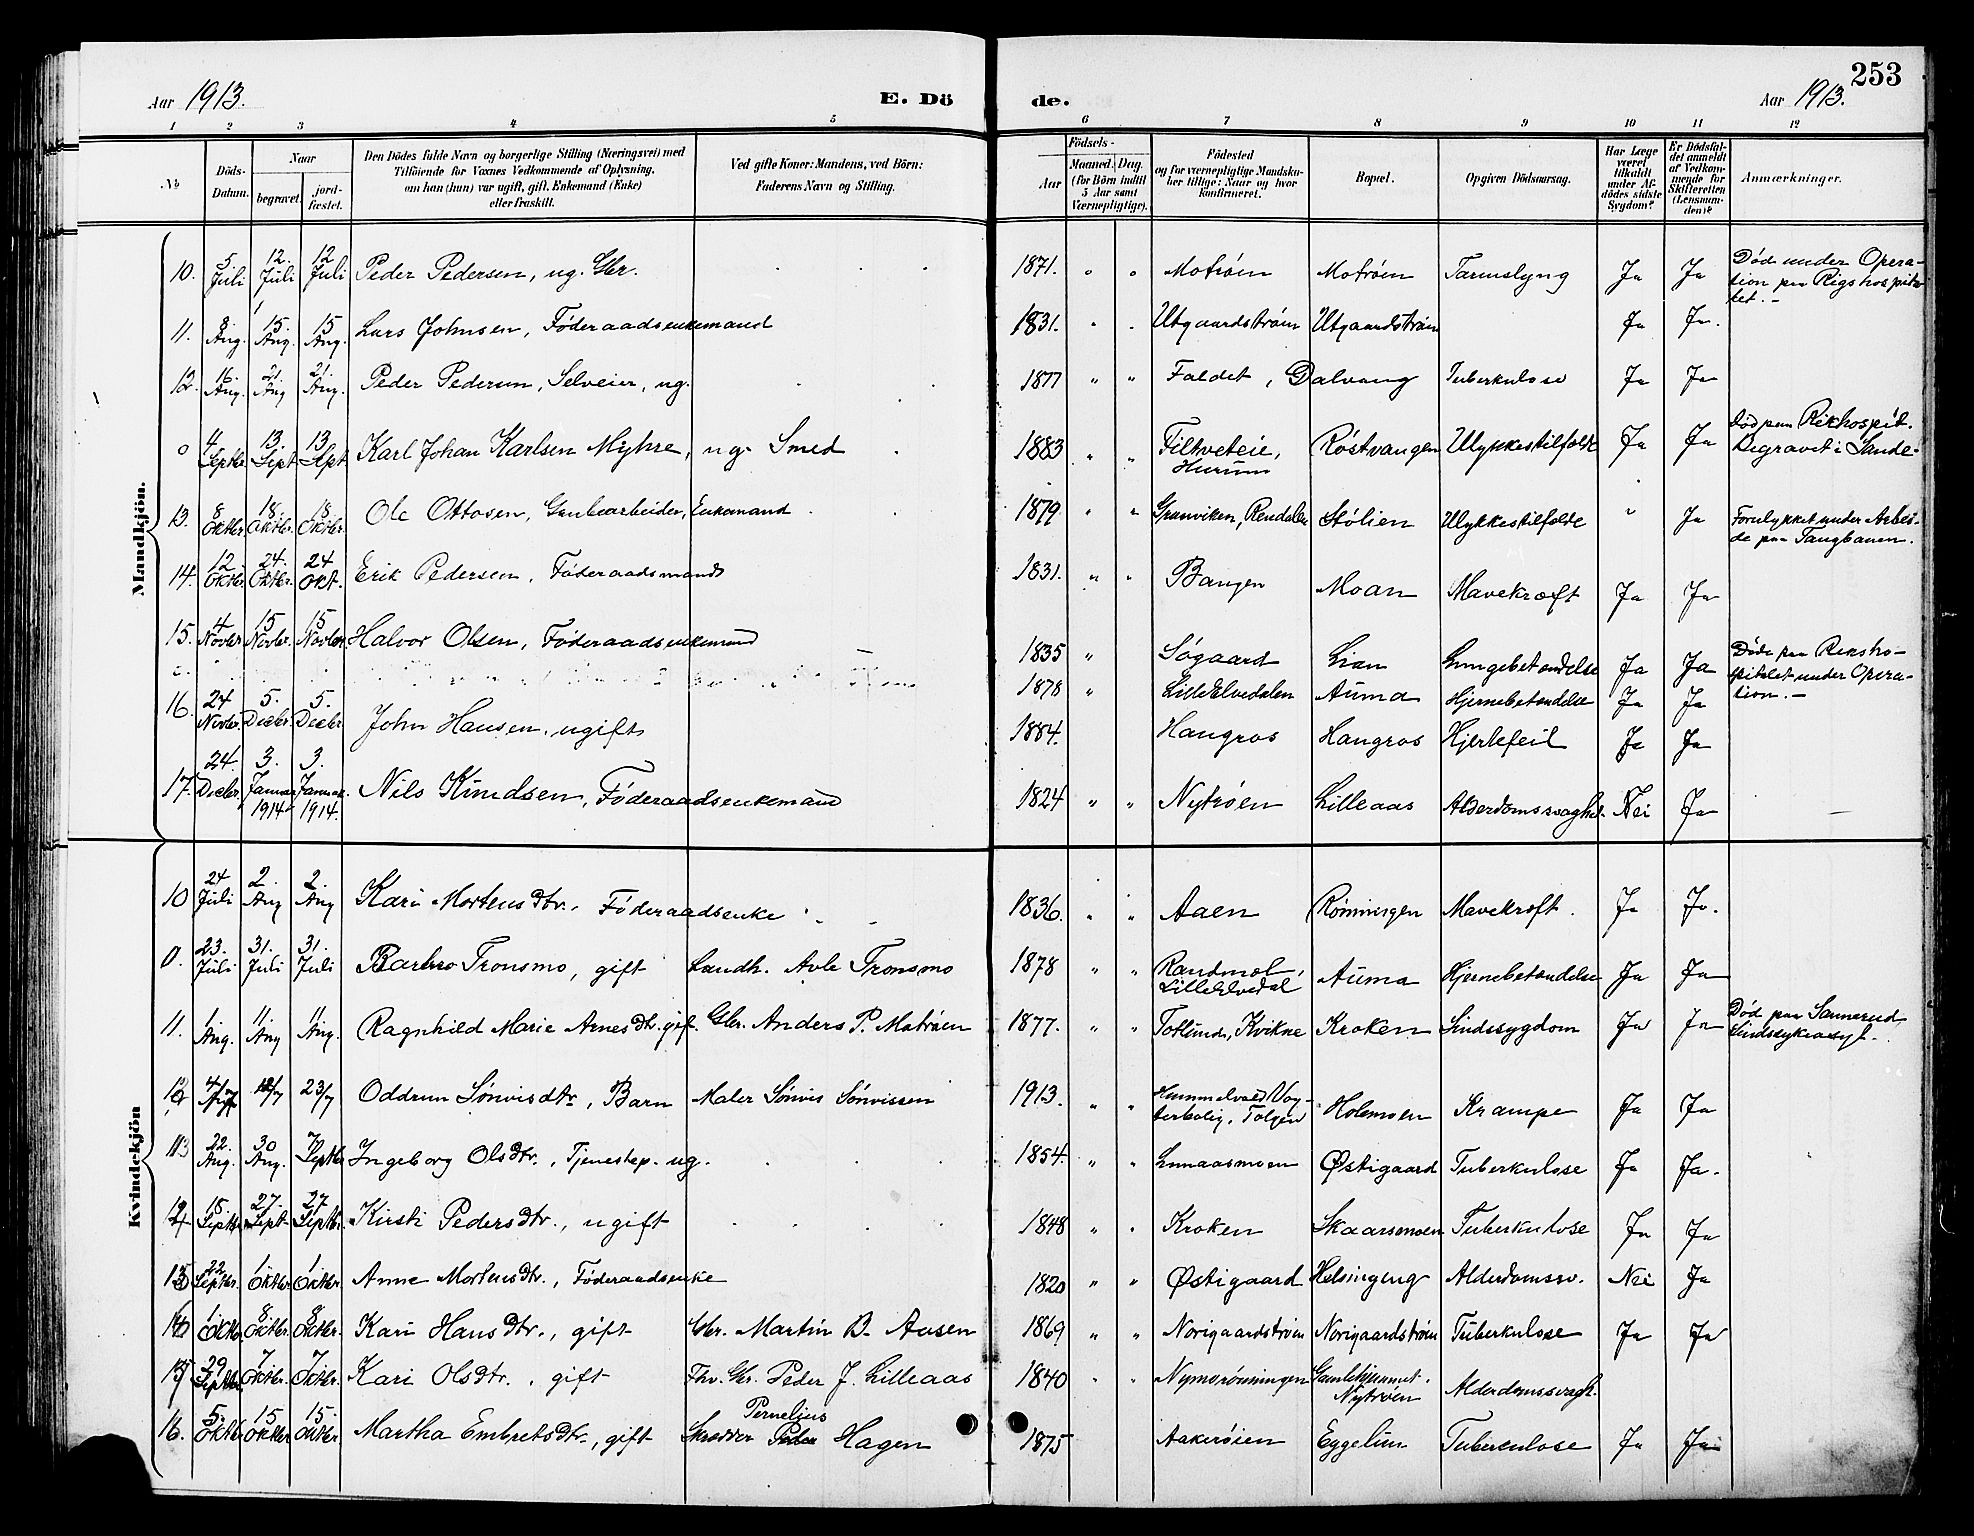 253
Aar 1913.
E. Dö
de.
Aar 1913.
1 2 3 4 5 6 7 8 9 10 11 12
№
Döds-
Datum.
Naar
begravet.
jord-
fæstet.
Den Dödes fulde Navn og borgerlige Stilling (Næringsvei) med
Tilföiende for Voxnes Vedkommende af Oplysning,
om han (hun) var ugift, gift, Enkemand (Enke)
eller fraskilt.
Ved gifte Koner: Mandens, ved Börn:
Faderens Navn og Stilling.
Födsels-
Aar
Maaned. Dag.
(for Börn indtil
5 Aar samt
Værnepligtige).
Födested
og for værnepligtige Mandska-
ber tillige: Naar og hvor
konfirmeret.
Bopæl.
Opgiven Dödsaarsag.
Har Læge
været
tilkaldt
under Af-
dödes sidste
Sygdom?
Er Dödsfal-
det anmeldt
af Vedkom-
mende for
Skifteretten
(Lensman-
den)?
Anmærkninger.
Mandkjön.
10. 5 Juli 12. Juli 12 Juli Peder Pedersen, ug. Gbr. 1871. " " Motrøen Motrøen Tarmslyng Ja Ja Død under Opera-
tion paa Rigshospita-
let.-
11. 8 Aug. 15 Aug. 15 Aug. Lars Johnsen, Føderaadsenkemand 1831. " " Utgaardstrøen Utgaardstrøen Ja Ja.
12. 16 Aug. 21. Aug 21. Aug. Peder Pedersen, Selveier, ug. 1877 " " Faldet, Dalvang Tuberkulose Ja Ja
0 4 Septbr. 13. Sept 13 Sept Karl Johan Karlsen Myhre, ug. Smed 1883 " " Filtveteie,
Hurum Røstvangen Ulykkestilfælde Ja Ja Død paa Rikhospit.
Begravet i Sande.
13. 8 Oktbr. 18. Oktbr. 18. Oktbr. Ole Ottosen, Grubearbeider, Enkemand 1879 " " Granviken, Rendalen Stølien Ulykkestilfælde " Ja Forulykket under Arbei-
de paa Taugbanen.
14. 12 Oktbr. 24. Oktbr. 24 Okt. Erik Pedersen, Føderaadsmand 1831. " " Bangen Moan Mavekræft Ja Ja
15. 4 Novbr 15 Novbr. 15 Novbr. Halvor Olsen, Føderaadsenkemand 1835 " Søgaard Lian Lungebetændelse Ja Ja
1878 " Lille Elvedalen Auma Hjernebetændelse Ja Ja Døde paa Riksho-
spitalet under Opera-
tion.-
16. 24 Novbr. 5. Decbr. 5. Decbr John Hansen, ugift 1884. Hangros Hangros Hjertefeil Ja Ja
17. 24. Decbr. 3. Januar 1914 3. Januar 1914. Nils Knudsen, Føderaadsenkemand 1824 " " Nytrøen Lilleaas Alderdomssvaghed. Nei Ja
Kvindekjön
10 24 Juli 2. Aug 2. Aug Kari Mortensdtr. Føderaadsenke 1836. " " Aaen Rønningen Mavekræft. Ja Ja.
0. 23. Juli 31. Juli 31. Juli Barbro Tronsmo, gift Landh. Avle Tronsmo 1878 " " Randmæl,
Lille Elvedal Auma Hjernebetændelse Ja Ja
11. 1 Aug. 11. Aug 11 Aug. Ragnhild Marie Arnesdtr. gift. Gbr. Anders P. Motrøen 1877. " " Totlund, Kvikne Kroken Sindssygdom Ja Ja Død paa Sannerud
Sindssykeasyl.
4/7 23/7 Oddrun Sønvisdtr, Barn Maler Sønvis Sønvissen 1913. " " Hummelvold Vog-
terbolig, Tolgen Holmoen Krampe Ja Ja
13 22. Aug. 30 Aug. 7 Septbr Ingeborg Olsdtr., Tjenestep. ug. 1854. " " Lunaasmoen Østigaard Tuberkulose Ja Ja.
18. Septbr. 27. Sept. 27. Septbr. Kirsti Pedersdtr., ugift 1848 " " Kroken Skaarsmoen Tuberkulose Ja Ja
22 Septbr. 1 Oktbr. 1 Oktbr. Anne Mortensdtr., Føderaadsenke 1820 " " Østigaard Helsingeng Alderdomssv. Nei Ja
1 Oktbr. 8 Oktbr. 8 Oktbr. Kari Hansdtr., gift Gbr. Martin B. Aasen 1869 " " Norigaardstrøen Norigaardstrøen Tuberkulose Ja Ja
29 Septbr. 7 Oktbr. 7 Oktbr. Kari Olsdtr., gift Fhv. Gbr. Peder J. Lilleaas 1840 " " Nymorønningen Gamlehjemmet.
Nytrøen Alderdomssvagh.
16. 5. Oktbr 15 Oktbr 15. Oktbr. Martha Embretsdtr., gift Skrædder Pernelius Hagen 1875 Aakerøien Eggelien Tuberculose Ja Ja